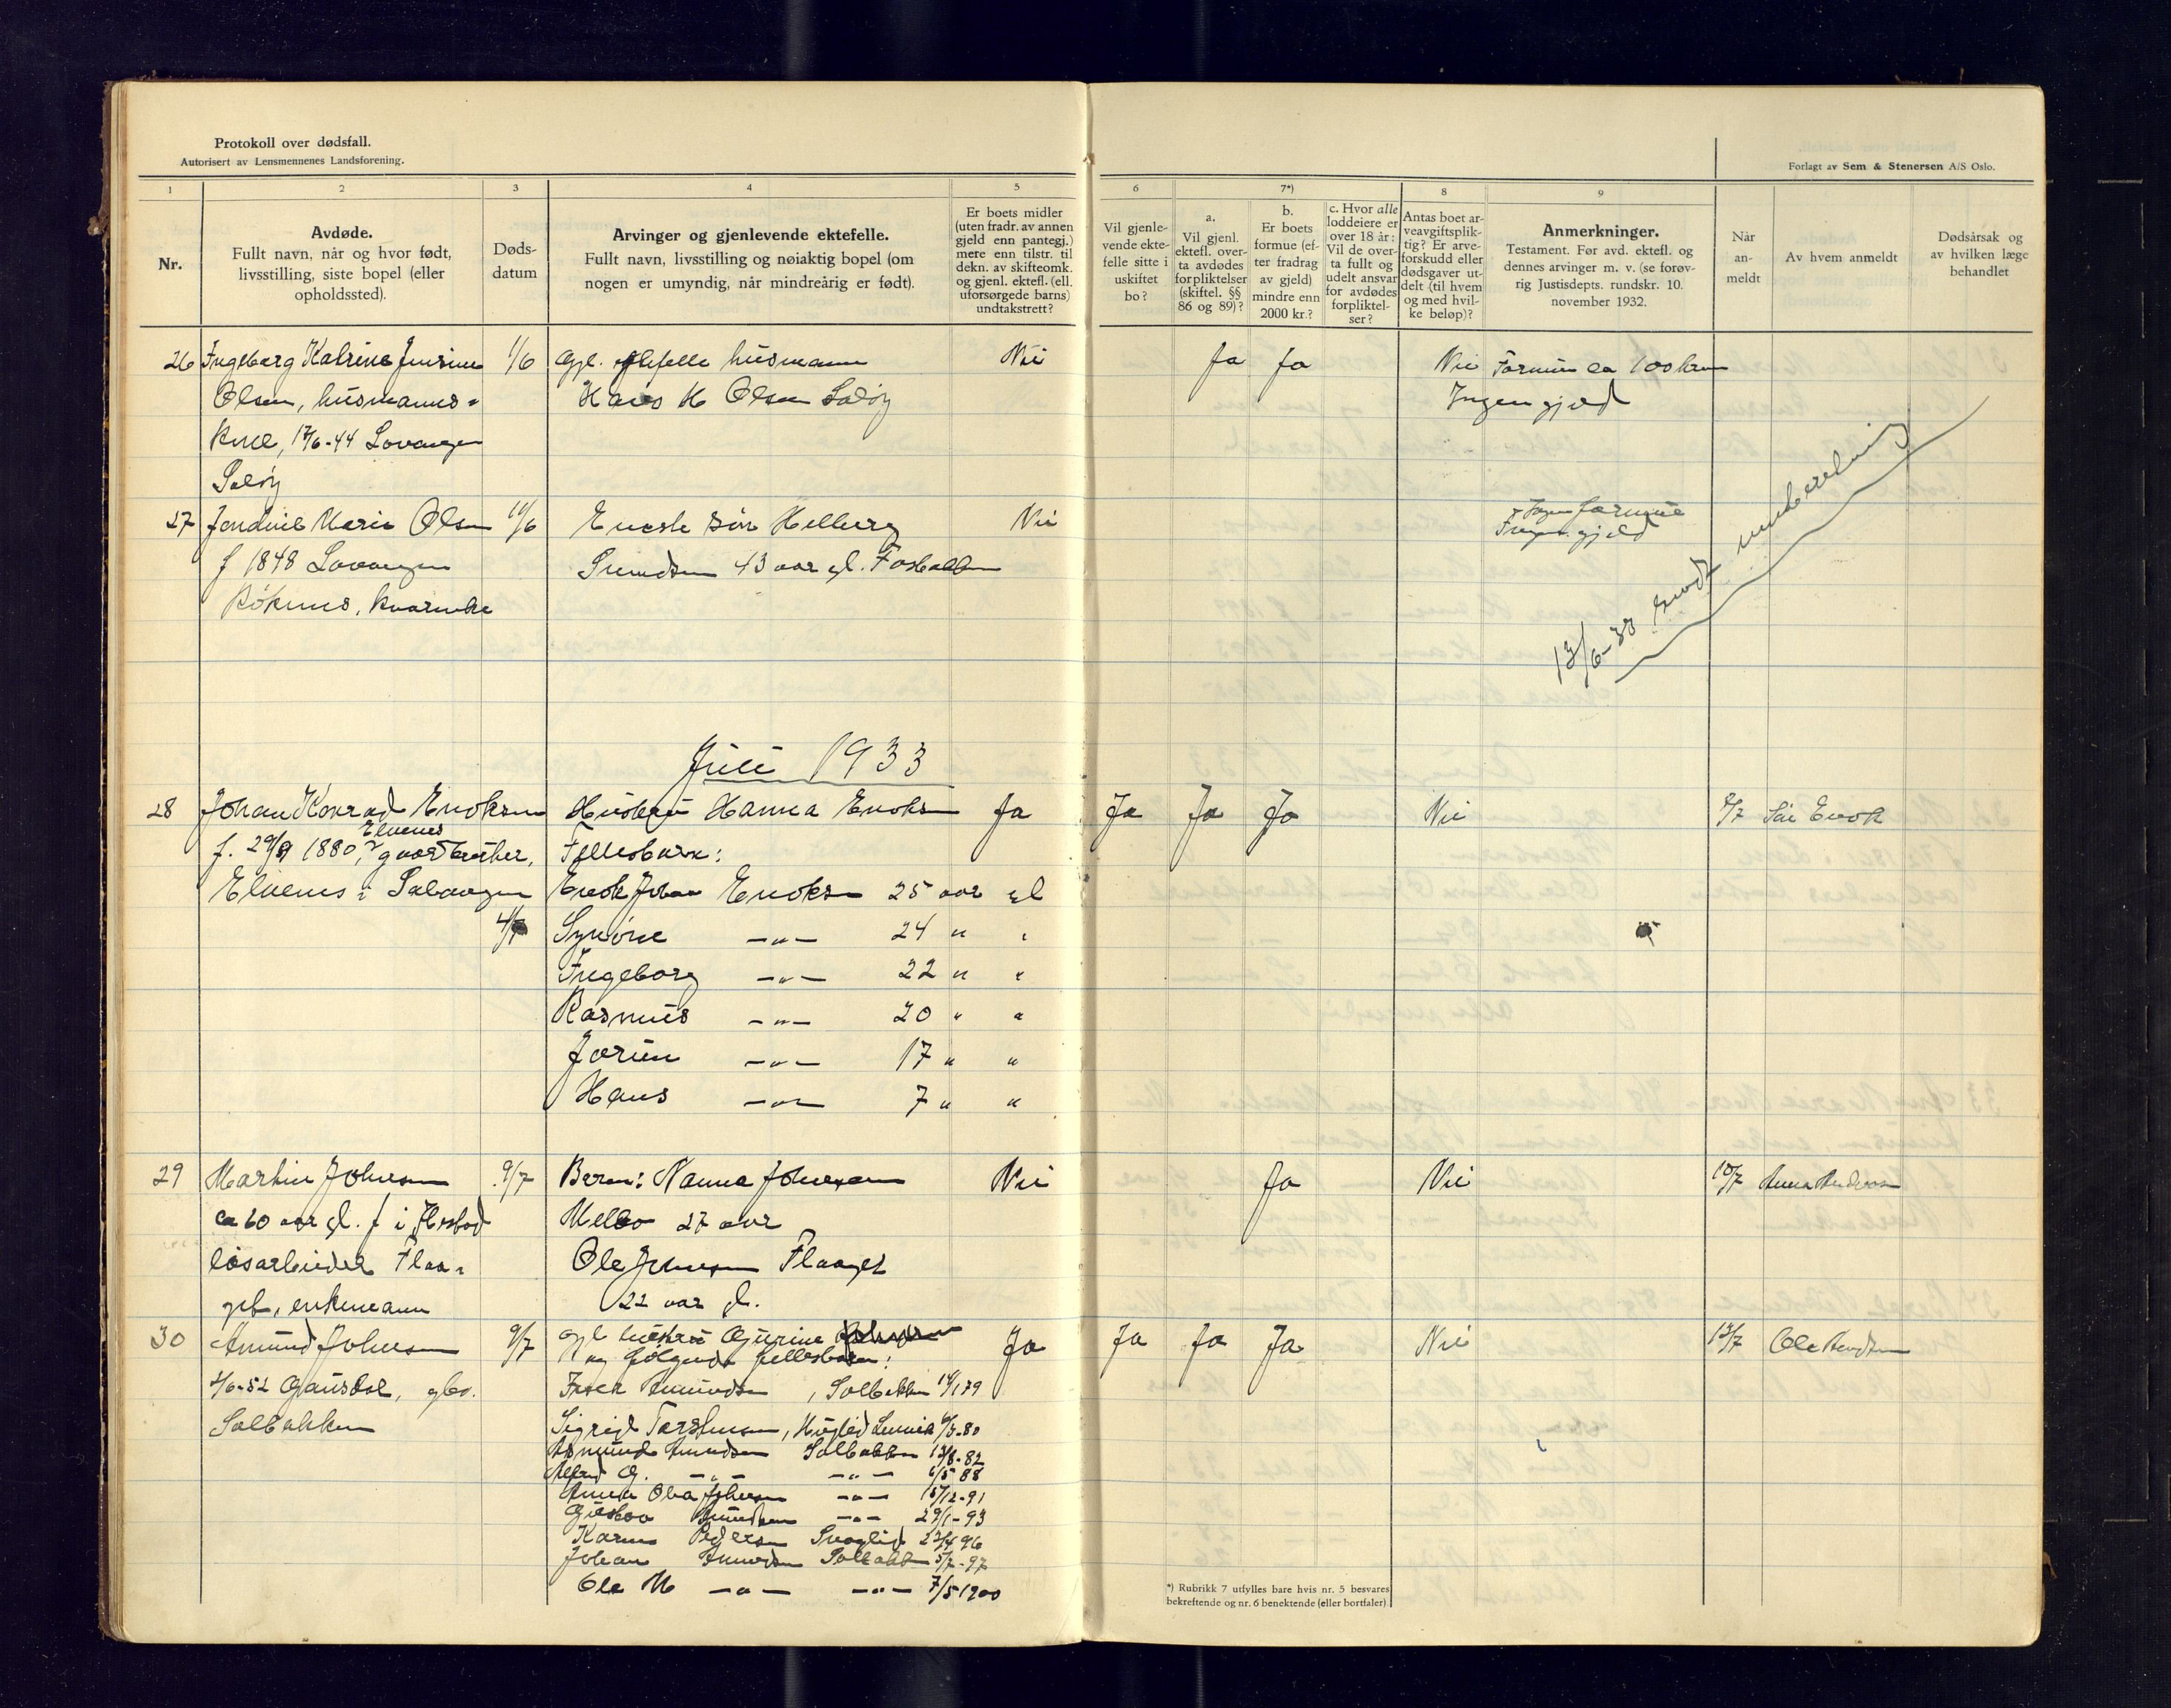 Protokoll over dødsfall.
Autorisert av Lensmennenes Landsforening.
Forlagt av Sem & Stenersen A/S Oslo.
1 2 3 4 5 6 7*) 8 9
Nr.
Avdøde.
Fullt navn, når og hvor født,
livsstilling, siste bopel (eller
opholdssted).
Døds-
datum
Arvinger og gjenlevende ektefelle.
Fullt navn, livsstilling og nøiaktig bopel (om
nogen er umyndig, når mindreårig er født).
Er boets midler
(uten fradr. av annen
gjeld enn pantegj.)
mere enn tilstr. til
dekn. av skifteomk.
og gjenl. ektefl. (ell.
uforsørgede barns)
undtakstrett?
Vil gjenle-
vende ekte-
felle sitte i
uskiftet
bo?
a.
Vil gjenl.
ektefl. over-
ta avdødes
forpliktelser
(skiftel. §§
86 og 89)?
b.
Er boets
formue (ef-
ter fradrag
av gjeld)
mindre enn
2000 kr.?
c. Hvor alle
loddeiere er
over 18 år:
Vil de over-
ta fullt og
udelt ansvar
for avdødes
forpliktel-
ser?
Antas boet ar-
veavgiftsplik-
tig? Er arve-
forskudd eller
dødsgaver ut-
delt (til hvem
og med hvil-
ke beløp)?
Anmerkninger.
Testament. Før avd. ektefl. og
dennes arvinger m. v. (se forøv-
rig Justisdepts. rundskr. 10.
november 1932.
Når
an-
meldt
Av hvem anmeldt
Dødsårsak og
av hvilken læge
behandlet
26 Ingeborg Katrine Jensine 1/6 gjl. husmann Nei Ja Ja Nei Formue ca 100 kr
Olsen, husmanns- H Olsen Saløy Ingen gjeld
17/6-44 Lavangen
Saløy
27 Marie Olsen 10/6 Eneste søn Hellberg Nei Ingen formue
f 1848 Lavangen 43 aar gl. Fosbakken Ingen gjeld
13/6-33 innberetning
Juli 1933
28 Johan Konrad Enoksen Hustru Hanna Enoksen Ja Ja Ja Ja Nei Enok
Elvenes
f. 29/9 1880, gaardbruker, Fellesbarn:
Elvenes i Salangen Enok Johan Enoksen 25 aar gl
4/7 Synøve —„— 24 " "
Ingeborg —„— 22 " "
Rasmus —„— 20 " "
Jorun —„— 17 " "
Hans —„— 7 " "
29 Martin Johnsen 9/7 Barn: Nanna Johnsen Nei Ja Nei 10/7 Anna
ca 60 aar gl. f i Melbo 27 aar
løsarbeider Ole Johnsen
enkemann 22 aar gl.
30 Amund Johnsen 9/7 gjl hustru Gurine Ja Ja Ja Ja Nei 13/7 Ole
og følgende fellesbarn:
Gausdal, gbr. Amundsen, Solbakken
Solbakken Sigrid
Amundsen Solbakken 13/8-82
—„— —„— 6/5 88
Johnsen —„— 15/12-91
—„— 29/1-93
Karen Pedersen
Johan Amundsen Solbakken 5/7-97
Ole M —„— —„— 7/5 1900
*) Rubrikk 7 utfylles bare hvis nr. 5 besvares
bekreftende og nr. 6 benektende (eller bortfaler)